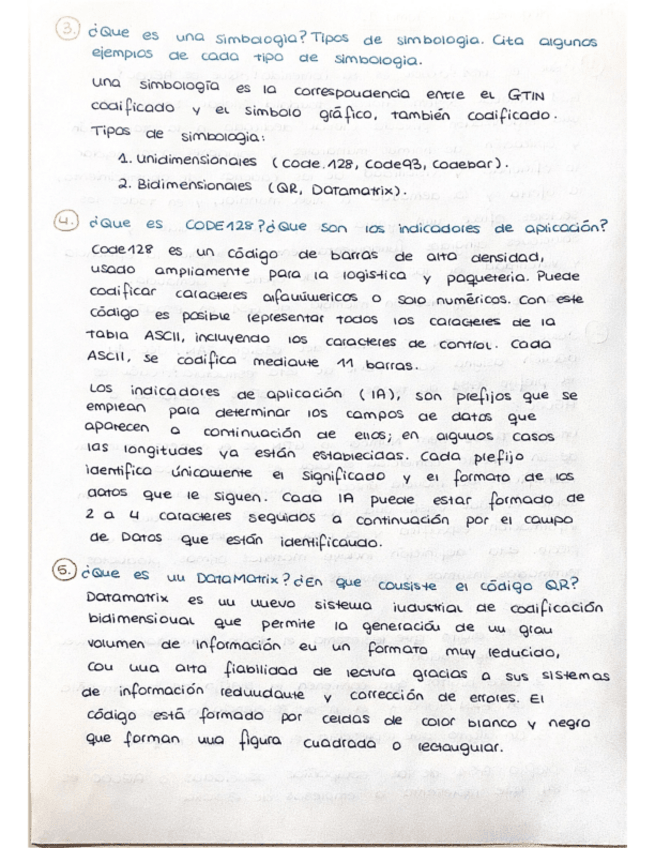 3. ¿Que es una simbologia? Tipos de simbologia. Cita algunos
ejemplos de cada tipo de simbologia.
una simbología es la correspondencia entre el GTIN
codificado y el simbolo gráfico, también codificado.
Tipos de simbologia:
1. unidimensionales (code.128, Code93, Codebar).
2. Bidimensionales (QR, Datamatrix).
4. ¿Que es CODE128? ¿Que son los indicadores de aplicación?
Code128 es un código de barras de alta densidad,
usado ampliamente para la logistica y paqueteria. Puede
codificar caracteres alfanuméricos o solo numéricos. Con este
código es posible representar todos los caracteres de la
tabla ASCII, incluyendo los caracteres de control. Cada
ASCII, se codifica mediante 11 barras.
Los indicadores de aplicación (IA), son prefijos que se
emplean para determinar los campos de datos que
aparecen a continuación de ellos; en algunos casos
las longitudes ya están establecidas. Cada prefijo
identifica únicamente el significado y el formato de los
datos que le siguen. Cada IA puede estar formado de
2 a 4 caracteres seguidos a continuación por el campo
de Datos que están identificando.
5. ¿Que es un DataMatrix? ¿En que consiste el código QR?
Datamatrix es un nuevo sistema industrial de codificación
bidimensional que permite la generación de un gran
volumen de información en un formato muy reducido,
con una alta fiabilidad de lectura gracias a sus sistemas
de información redundante y corrección de errores. El
código está formado por celdas de color blanco y negro
que forman una figura cuadrada o rectangular.